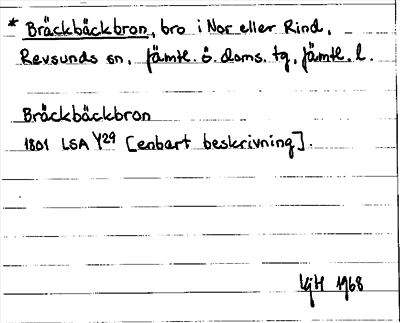 * Bräckbäckbron, bro i Nor eller Rind,
Revsunds sn, Jämtl. ö. doms. tg, Jämtl. l.
Bräckbäckbron
1801 LSA Y29 [enbart beskrivning].
1968